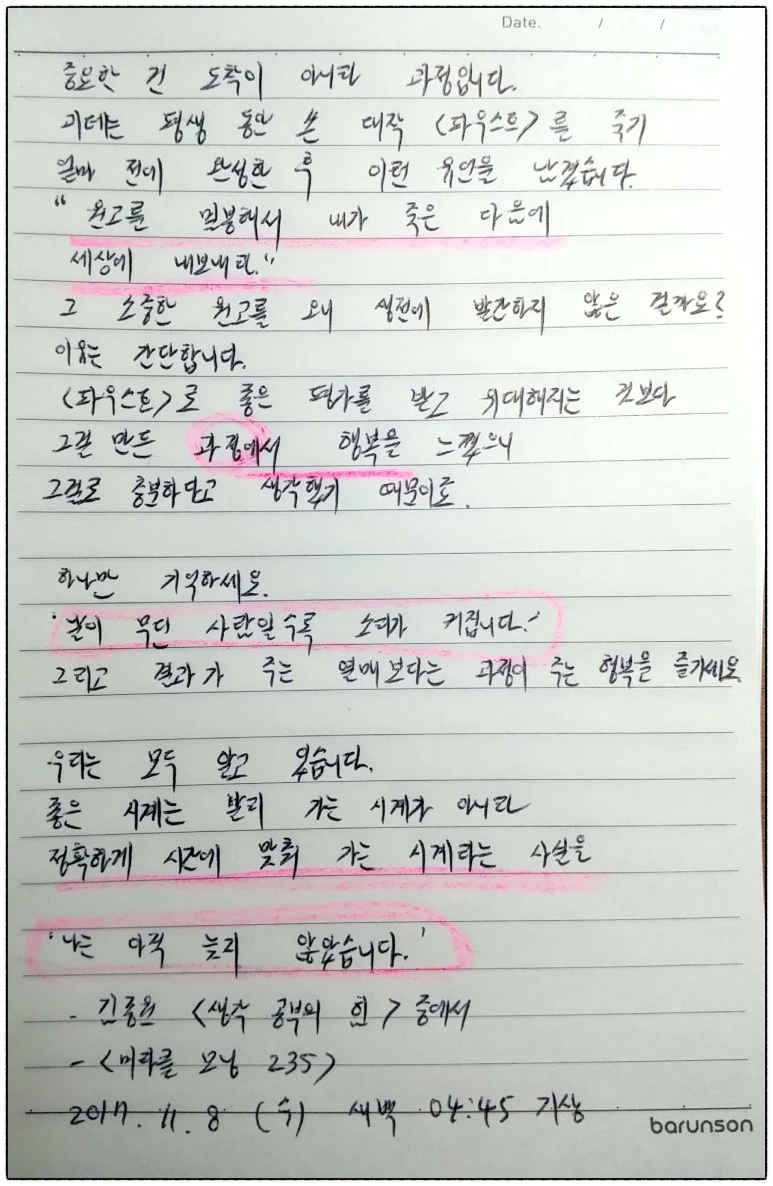 Date. / /
중요한 건 도착이 아니라 과정입니다.
괴테는 평생 동안 쓴 대작 <파우스트>를 죽기
얼마 전에 완성한 후 이런 유언을 남겼습니다.
"원고를 밀봉해서 내가 죽은 다음에
세상에 내보내라."
그 소중한 원고를 왜 생전에 발간하지 않은 걸까요?
이유는 간단합니다.
<파우스트>로 좋은 평가를 받고 위대해지는 것보다
그걸 만든 과정에서 행복을 느꼈으니
그걸로 충분하다고 생각했기 때문이죠.
하나만 기억하세요.
'날이 무딘 사람일수록 소리가 커집니다.'
그리고 결과가 주는 열매보다는 과정이 주는 행복을 즐기세요
우리는 모두 알고 있습니다.
좋은 시계는 빨리 가는 시계가 아니라
정확하게 시간에 맞춰 가는 시계라는 사실을
'나는 아직 늦지 않았습니다.'
- 김종원 <생각 공부의 힘> 중에서
- <미라클 모닝 235>
2017. 11. 8 (수) 새벽 04:45 기상
barunson